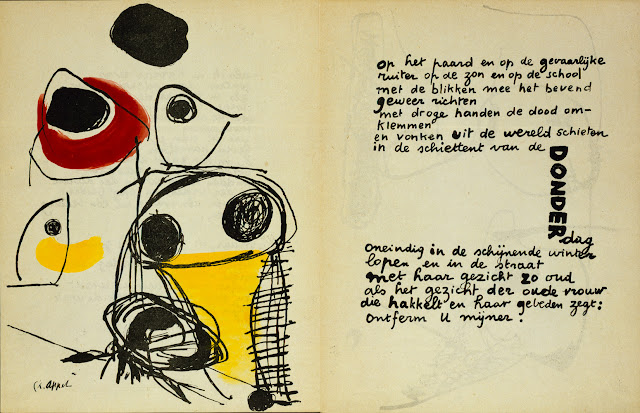 op het paard en op de gevaarlijke
ruiter op de zon en op de school
met de blikken mee het bevend
geweer richten
met droge handen de dood om-
klemmen
en vonken uit de wereld schieten
in de schiettent van de
DONDER
dag
oneindig in de schijnende winter
lopen en in de straat
met haar gezicht zo oud
als het gezicht der oude vrouw
die hakkelt en haar gebeden zegt:
ontferm U mijner!
k.appel